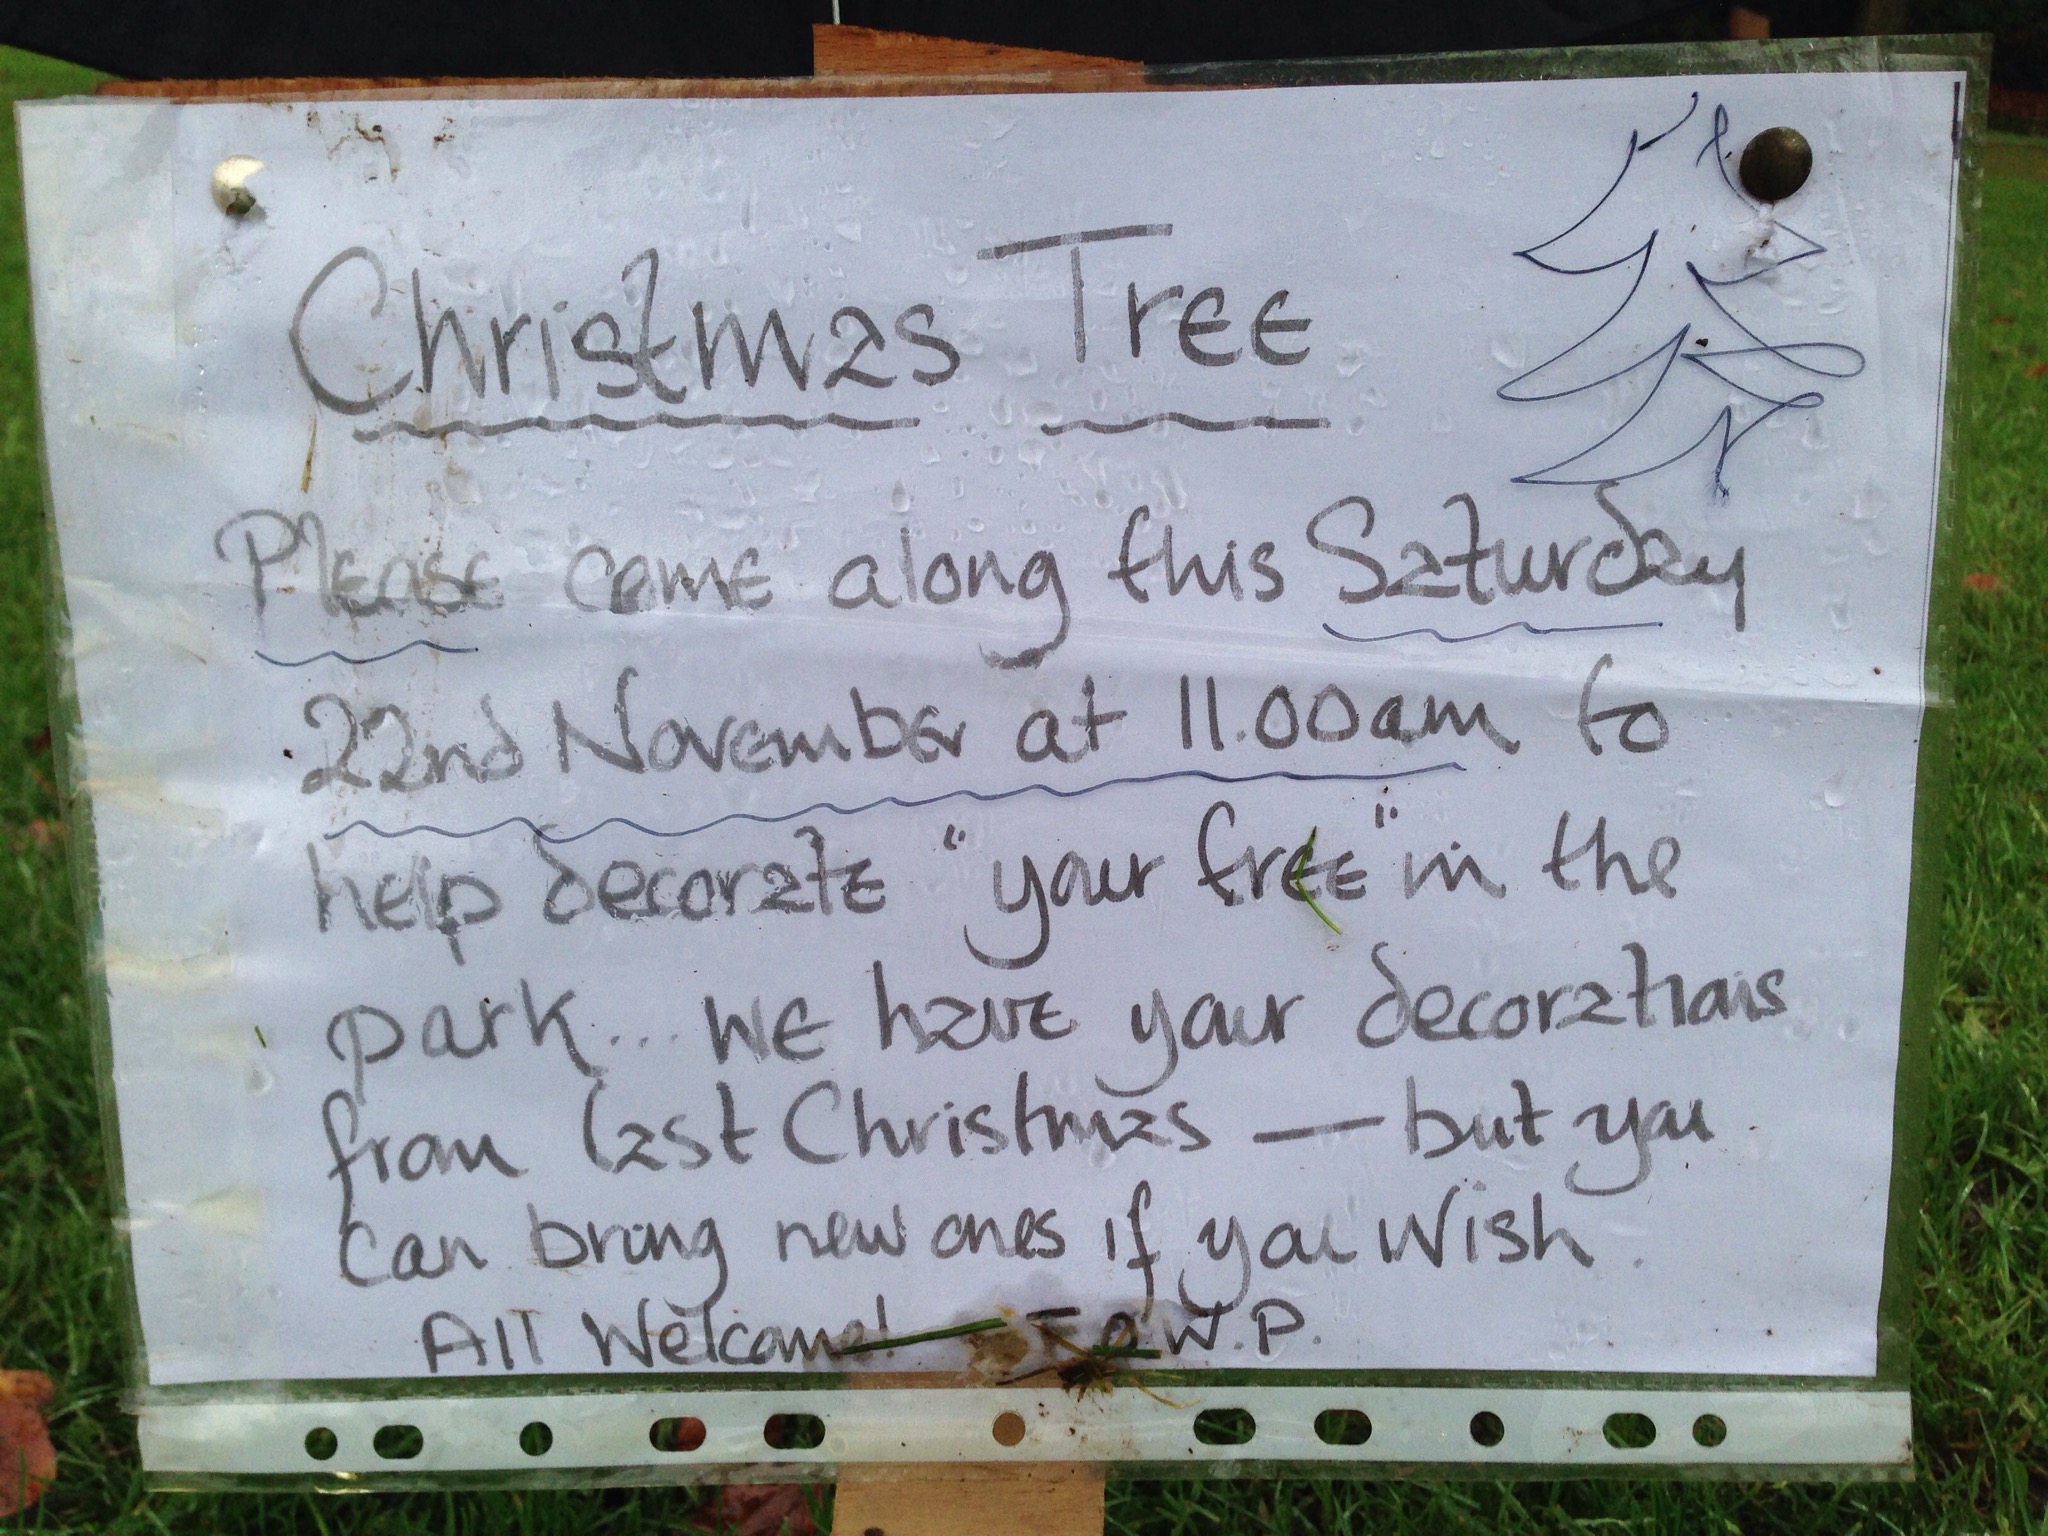 Christmas Tree
Please come along this Saturday
22nd November at 11.00am to
help decorate "your tree" in the
park... we have your decorations
from last Christmas — but you
can bring new ones if you wish.
All Welcome! F.O.W.P.